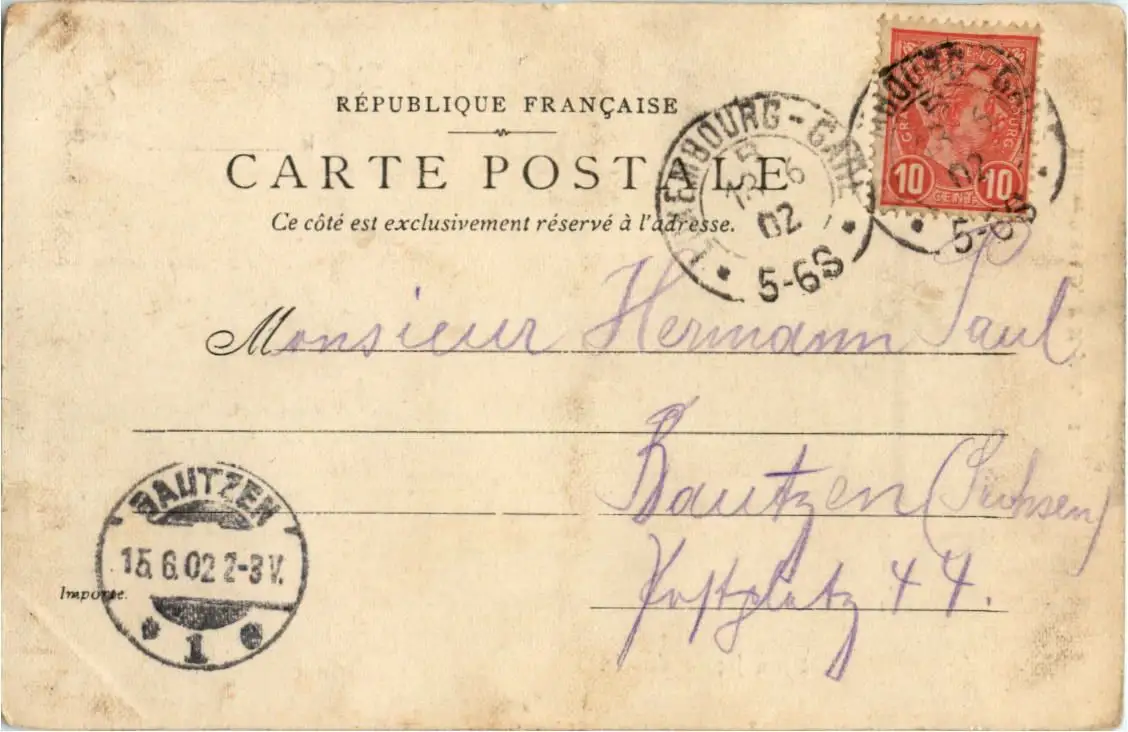 RÉPUBLIQUE FRANÇAISE
CARTE POSTALE
Ce côté est exclusivement réservé à l'adresse.
LUXEMBOURG-GARE
6
02
5-6S
LUXEMBOURG
10 CENT. 10
02
5-6S
Monsieur Hermann Paul
Bautzen (Sachsen)
Postplatz 44.
BAUTZEN
15.6.02 2-3V.
1
Importé.